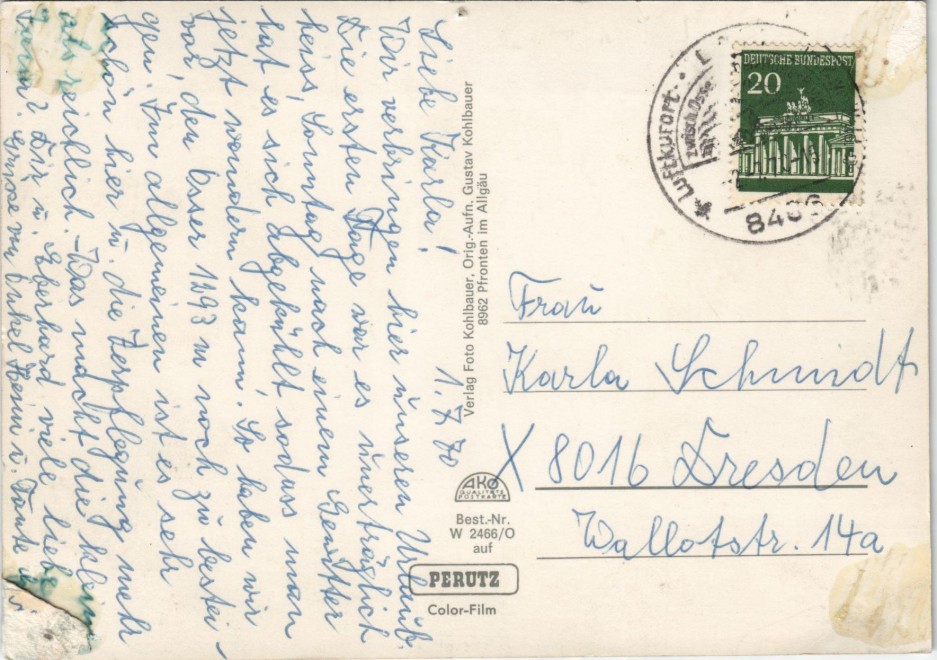 1.7.70
Liebe Karla!
Wir verbringen hier unseren Urlaub.
Die ersten Tage war es unerträglich
heiss, Sonntag nach einem Gewitter
hat es sich abgekühlt sodass man
jetzt wandern kann. So haben wir
vor, den Osser 1293 m noch zu bestei-
gen. Im allgemeinen ist es sehr
schön hier u. die Verpflegung mehr
als reichlich. - Was macht die kleine
Dir u. Eberhard viele liebe
Grüsse von Onkel Heini u. Tante
Verlag Foto Kohlbauer, Orig.-Aufn. Gustav Kohlbauer
8962 Pfronten im Allgäu
AKO
QUALITÄTS
POSTKARTE
Best.-Nr.
W 2466/O
auf
PERUTZ
Color-Film
DEUTSCHE BUNDESPOST
20
LUFTKURORT
zwisch. Osse
Frau
Karla Schmidt
X 8016 Dresden
Wallotstr. 14a